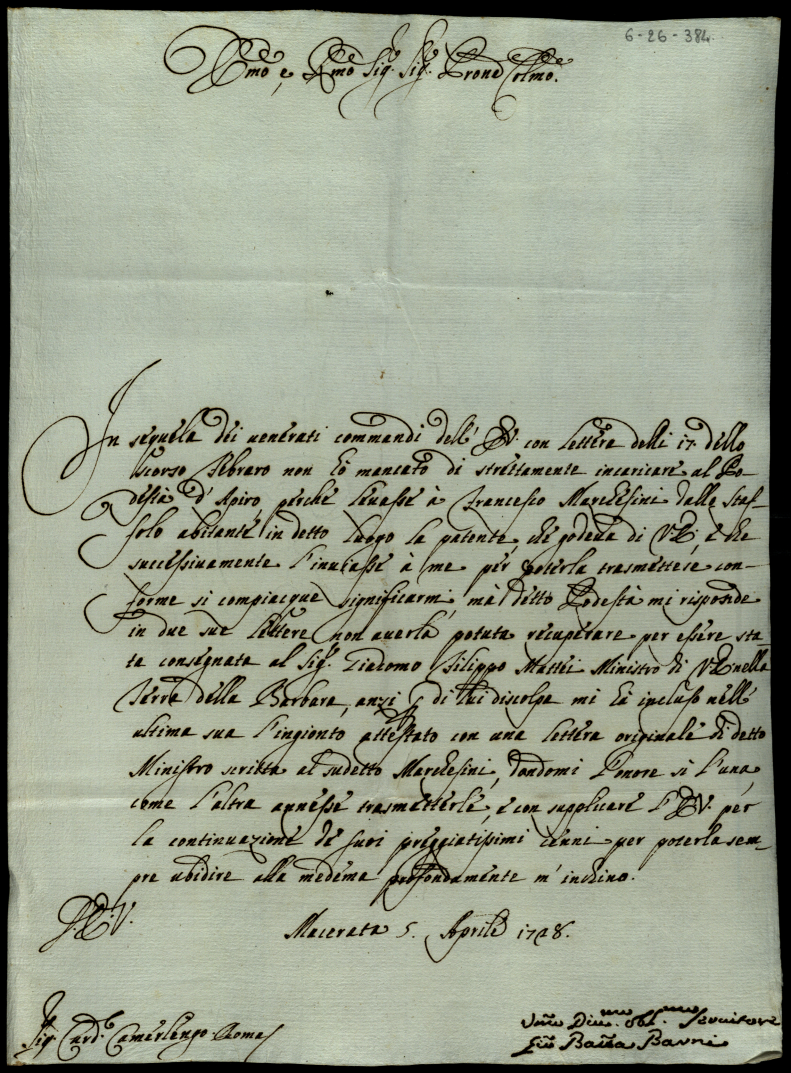 6-26-384
Emo e, Rmo Sig.r Sig.r Prone Colmo.
In sequela dei uenerati commandi dell' E.V. con lettera delli 17. dello
scorso Febraro non hò mancato di strettamente incaricare al Po-
destà d'Apiro, perche leuasse à Francesco Marchesini dalle Staf-
folo abitante in detto luogo la patente, che godeua di V.E., e che
successiuamente l'inuiasse à me per poterla trasmettere con-
forme si compiacque significarmi, mà detto Podestà mi risponde
in due sue lettere non auerla potuta recuperare per essere sta-
ta consegnata al Sig.r Giacomo Filippo Mattei Ministro di V.E. nella
Serra della Barbara, anzi p di lui discolpa mi hà incluso nell'
ultima sua l'ingionto attestato con una lettera originale di detto
Ministro scritta al sudetto Marchesini, dandomi l'onore sì l'una,
come l'altra annesse trasmetterle, e con supplicare l'E.V. per
la continuazione de suoi preggiatissimi cenni per poterla sem-
pre ubidire alla medema profondamente m'inchino.
D. E. V.
Macerata 5. Aprile 1728.
Sig.r Card.l Camerlengo Roma
Vmo Diu.mo Obl.mo Seruitore
Gio Batta Bauni